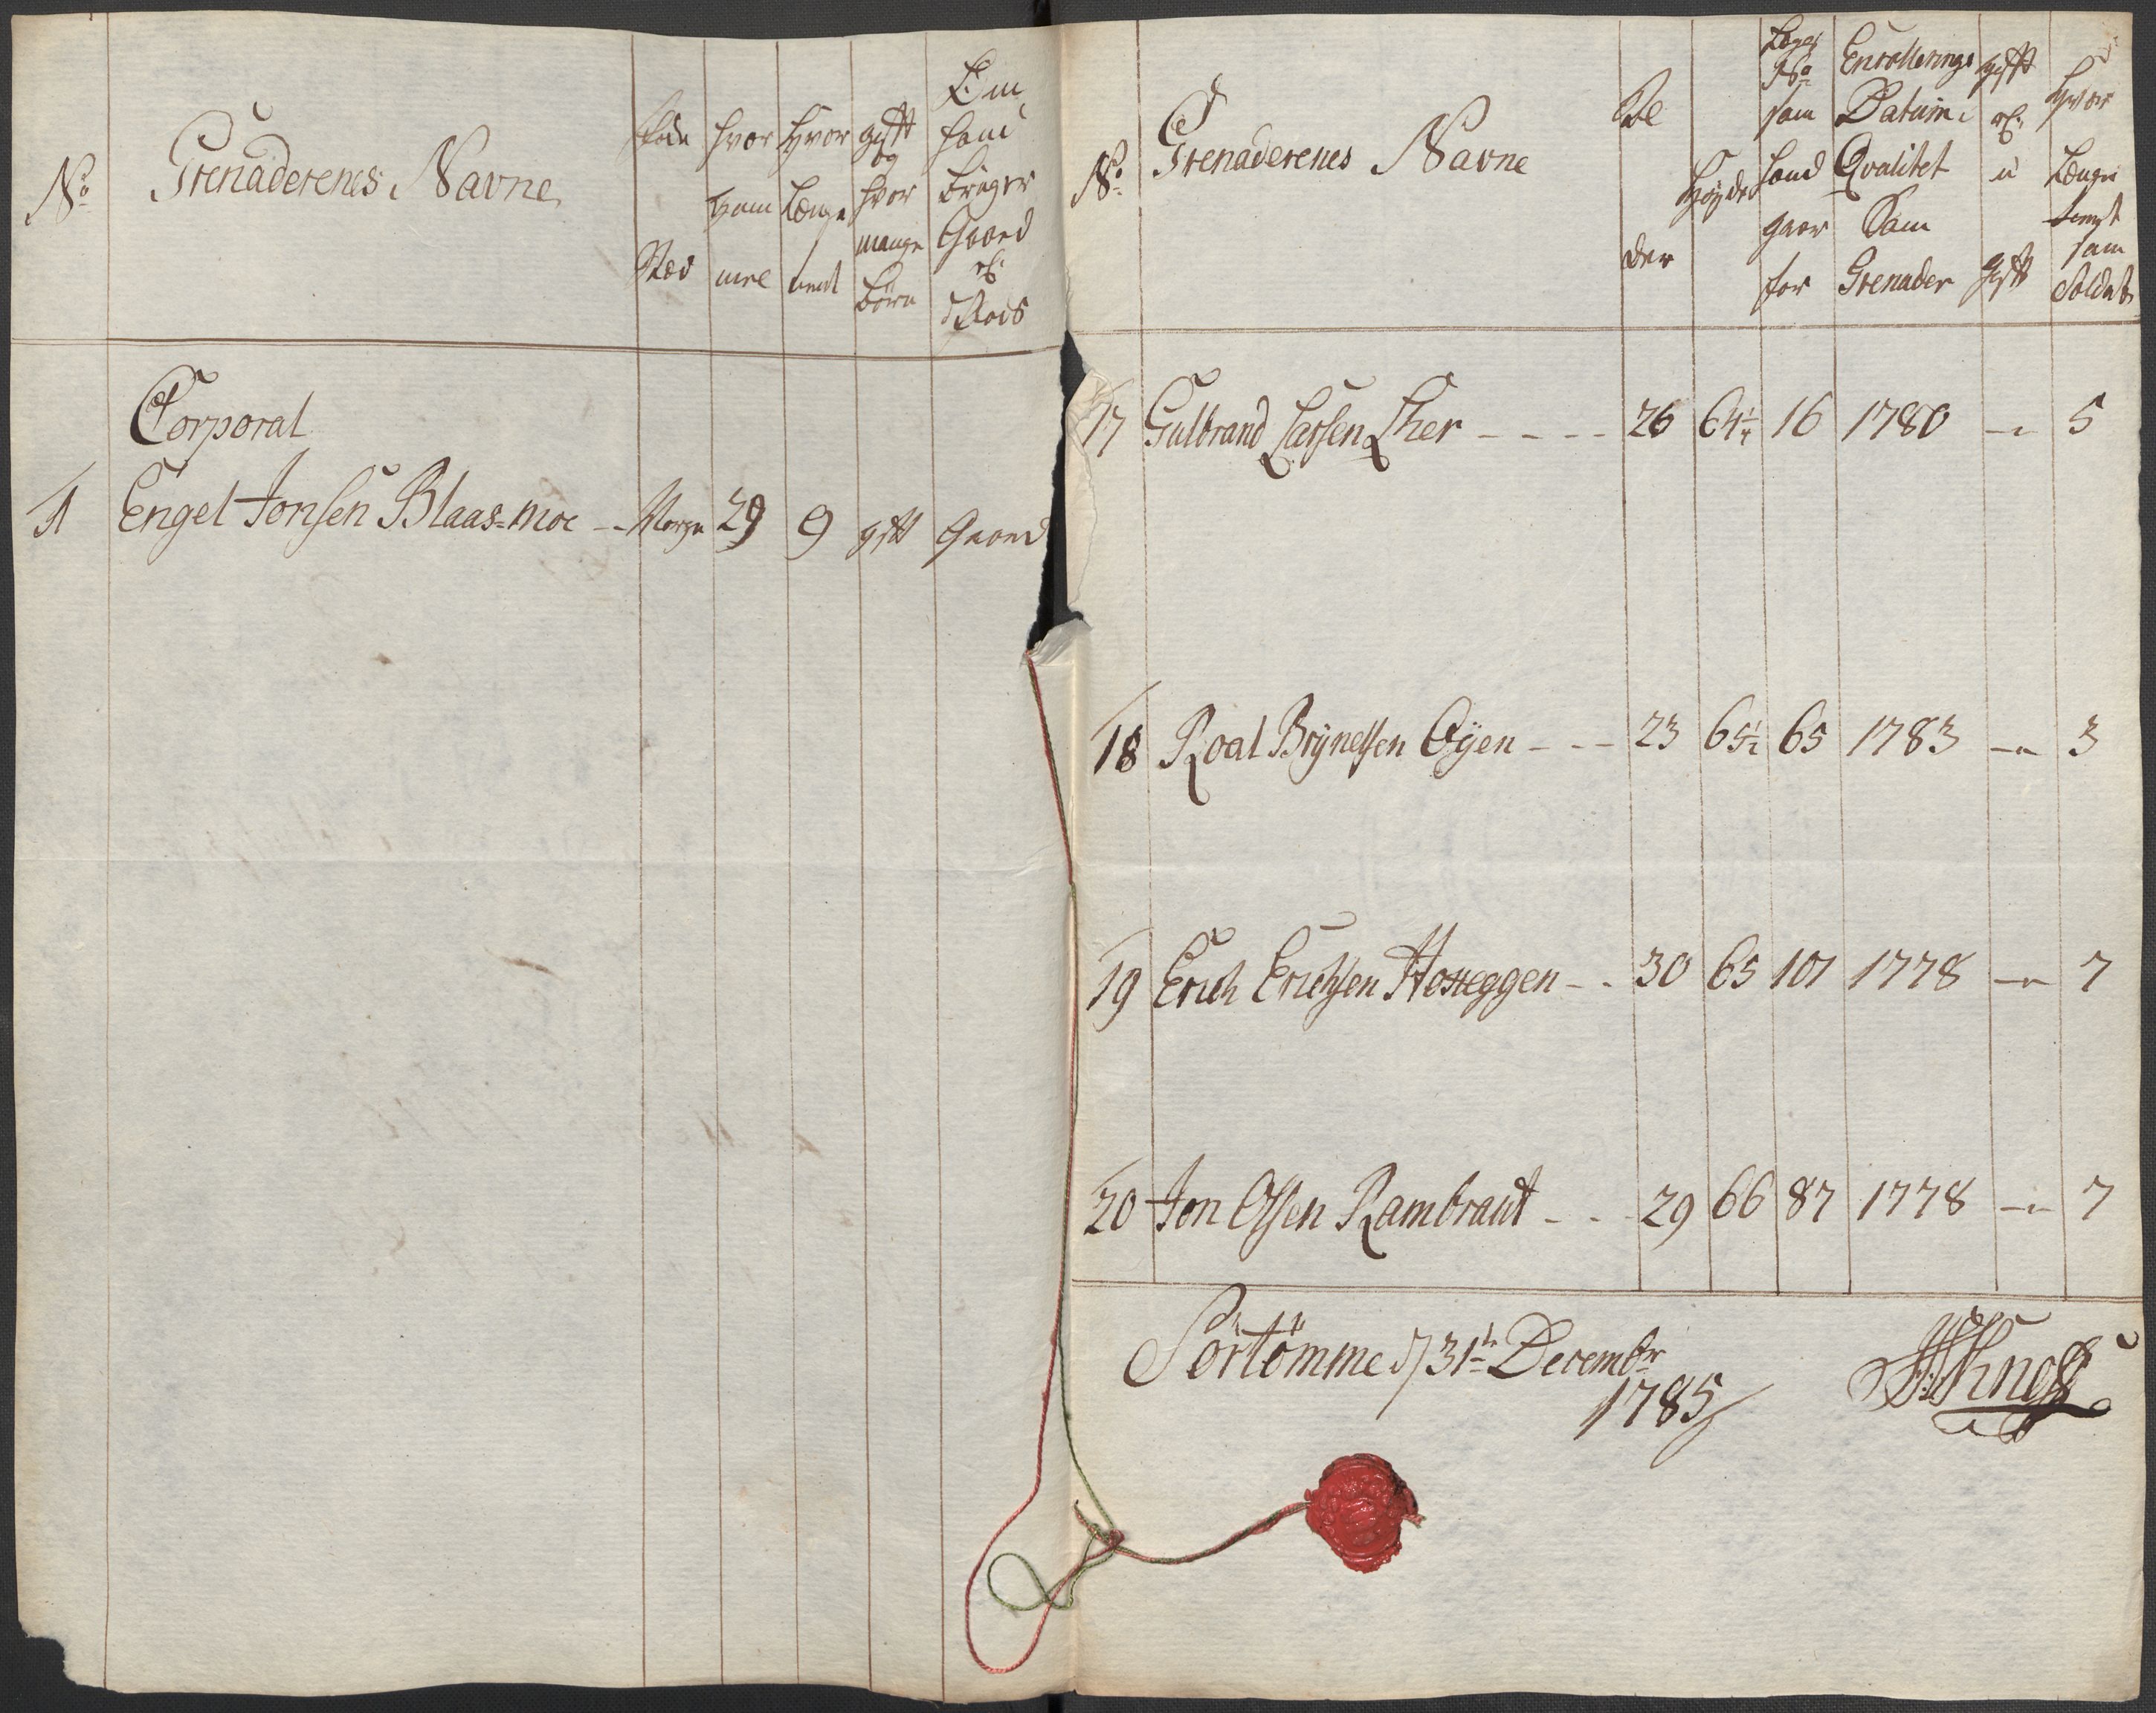 No
Grenaderenes Navne
Føde Stæd
hvor gam mel
hvor Længe tient
gift og hvor mange Börn
Om hand bruger Gaard el: Plads
Corporal
1 Engel Jonsen Blaas=moe -- Norge 29 9 gift Gaard
No
Grenaderenes Navne
Al der
Høyde
Læges No som hand gaar for
Enrollerings Datum i Qvalitet Som Grenader
gift el: u gift
Hvor Længe tient som Soldat
17 Gulbrand Larsen Lher - - - - 26 64¼ 16 1780 -"- 5
18 Roal Brÿnelsen Oÿen - - - 23 65½ 65 1783 -"- 3
19 Erich Erichsen Hoseggen - - 30 65 101 1778 -"- 7
20 Jon Olsen Rambraut - - - 29 66 87 1778 -"- 7
Sörtömme d 31te Decembr
1785